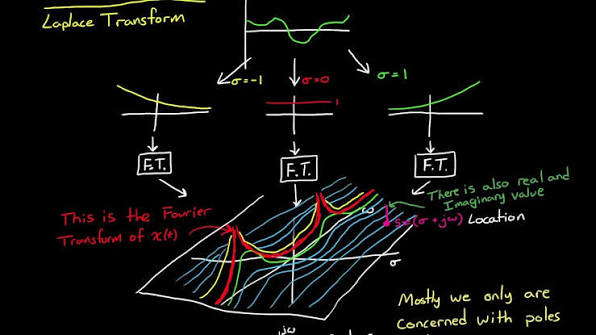 Laplace Transform
σ=-1
σ=0
σ=1
1
F.T.
F.T.
F.T.
There is also real and
Imaginary value
This is the Fourier
Transform of x(t)
ω
s=(σ+jω) Location
σ
Mostly we only are
concerned with poles
jω